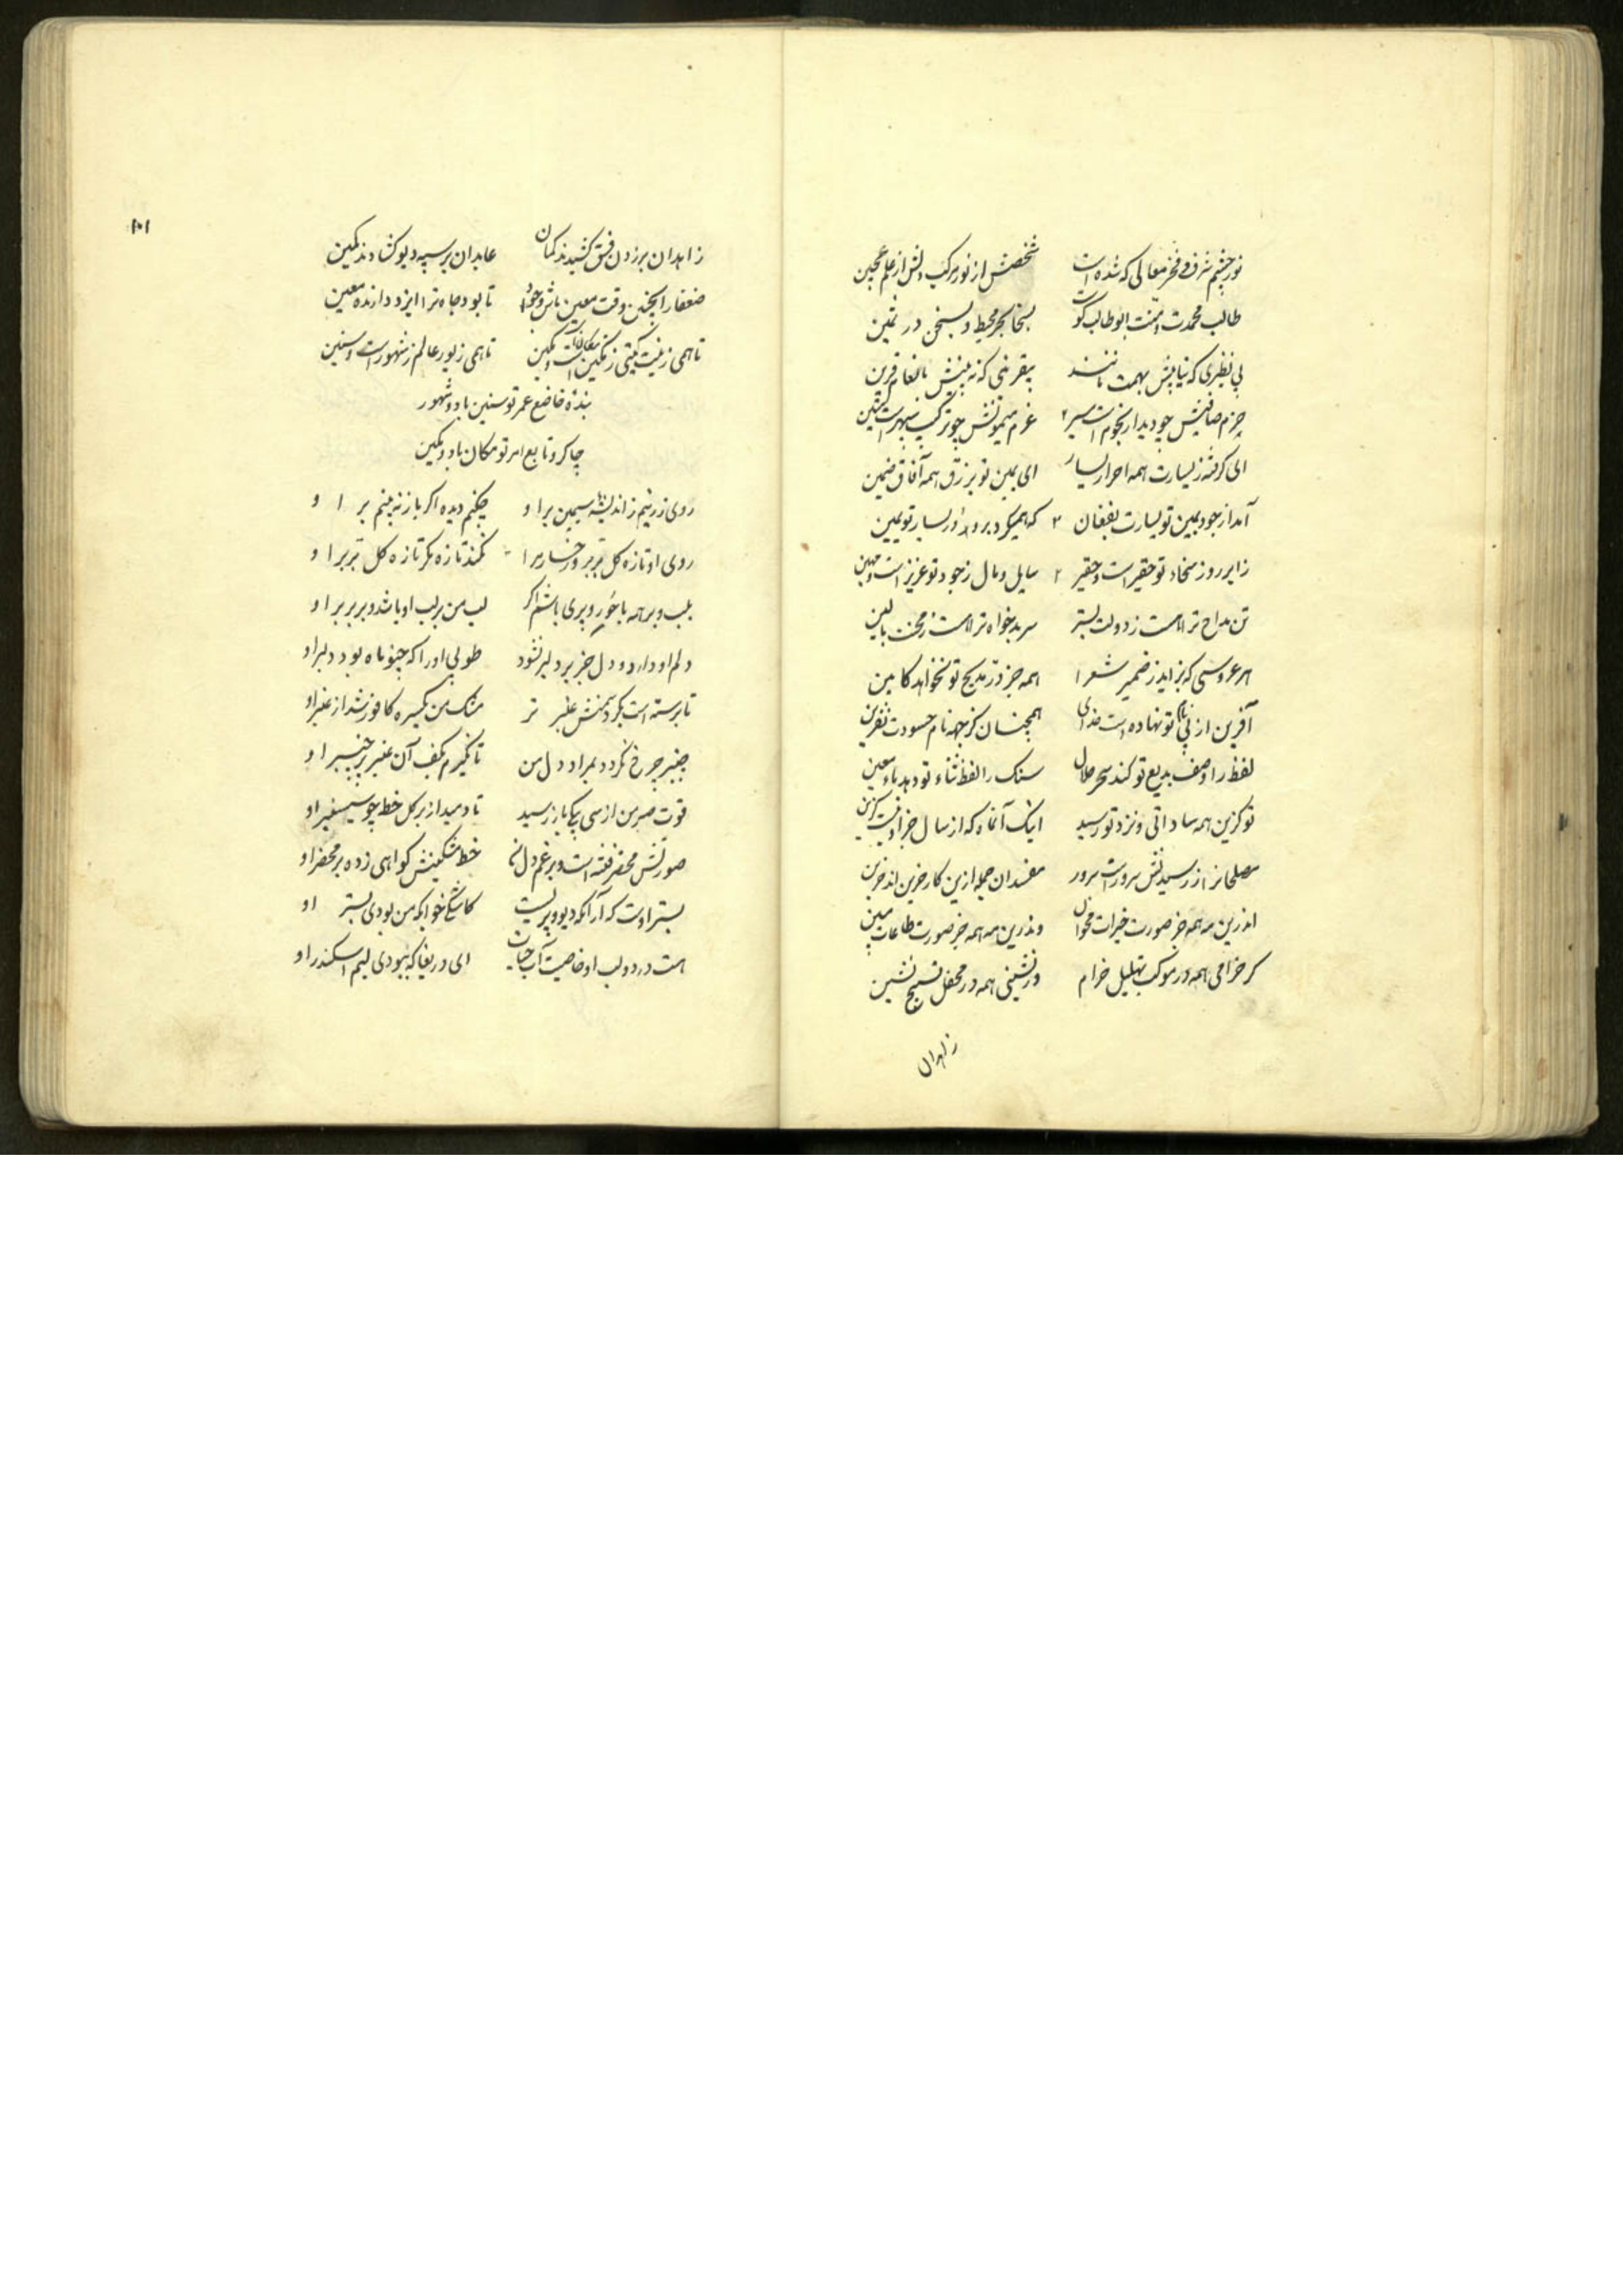 نور چشم شرف و فخر معالی که شده است شخصش از نور مرکب دلش از علم عجین
طالب محمدت و منت ابوطالب کوست بسخا بحر محیط و بسخن در ثمین
بی نظیری که نیابیش بهمت مانند بیقرینی که نه بینیش بانعام قرین
حزم صافیش چو دیدار نجوم است عزم میمونش چو ترکیب سپهر است متین
ای گرفته ز یسارت همه احرار یسار ای یمین تو برزق همه آفاق ضمین
آمد از جود یمین تو یسارت بفغان که همیگرد برو
زایر روز سخاء تو حقیر است و حقیر سایل و مال ز جود تو عزیز است و مهین
تن مداح ترا هست ز دولت بستر سر بدخواه ترا هست ز محنت بالین
هر عروسی که بزاید ز ضمیر شعرا همه جز در مدیح تو نخواهد کابین
آفرین از پی نام تو نهاده است خدای همچنان کز جهة نام حسودت نفرین
لفظ را وصف بدیع تو کند سحر حلال سنک را لفظ ثناء تو دهد ماء معین
تو گزین همه ساداتی و نزد تو رسید اینک آنماه که از سال خداوند گزین
مصلحانرا ز رسیدنش سرور است سرور مفسدان جمله ازین کار حزین اند حزین
اندرین مه همه جز صورت خیرات مخوان وندرین مه همه جز صورت طاعات مبین
گر خرامی همه در موکب تهلیل خرام ور نشینی همه در محفل تسبیح نشین
زاهدان
۱۰۱
زاهدان بر زدن فسق کشیدند کمان عابدان بر سپه دیو گشادند کمین
ضعفا را بچنین وقت معین باش و جواد تا بود جاه ترا ایزد دارنده معین
تا همی زینت گیتی ز مکان است و مکین تا همی زیور عالم ز شهور است و سنین
بنده خاضع عمر تو سنین باد و شهور
چاکر و تابع امر تو مکان باد و مکین
روی زرینم ز اندیشه سیمین بر او چکنم دیده اگر باز نه بینم بر او
روی او تازه گل تر بر و رخسار مرا نکند تازه مگر تازه گل تر بر او
بلب و بر همه با حور و پری باشم اگر لب من بر لب او باشد و بر بر بر او
دلم او دارد و دل جز بر دلبر نشود طوبی اورا که چنو ماه بود دلبر او
تا برسته است بگرد سمنش عنبر تر مشک من یکسره کافور شد از عنبر او
چنبر چرخ نگردد بمراد دل من تا نگیرم بکف آن عنبر پر چنبر او
قوت صبر من از سی بیکی باز رسید تا دمید از بر گل خط چو سیسنبر او
صورتش محضر فتنه است و برغم دل ما خط مشکینش گواهی زده بر محضر او
بستر اوست که آرامگه دیو و پریست کاشکی خوابگه من بودی بستر او
هست در دو لب او خاصیت آب حیات ای دریغا که ببودی لبم اسکندر او